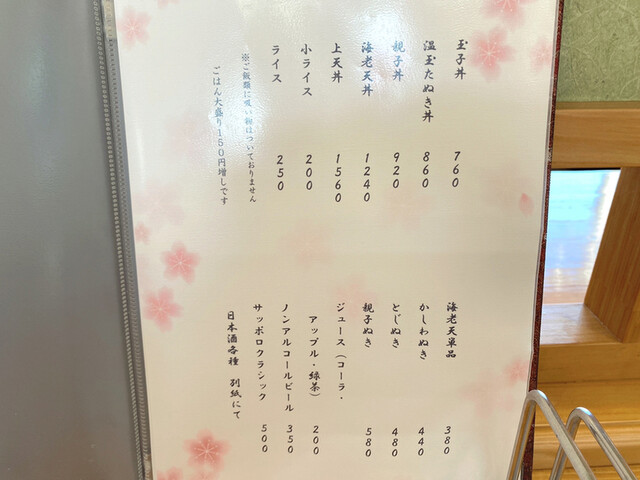 玉子丼 760
温玉たぬき丼 860
親子丼 920
海老天丼 1240
上天丼 1560
小ライス 200
ライス 250
※ご飯類に吸い物はついておりません
ごはん大盛り150円増しです
海老天単品 380
かしわぬき 440
とじぬき 480
親子ぬき 580
ジュース（コーラ・
アップル・緑茶） 200
ノンアルコールビール 350
サッポロクラシック 500
日本酒各種 別紙にて